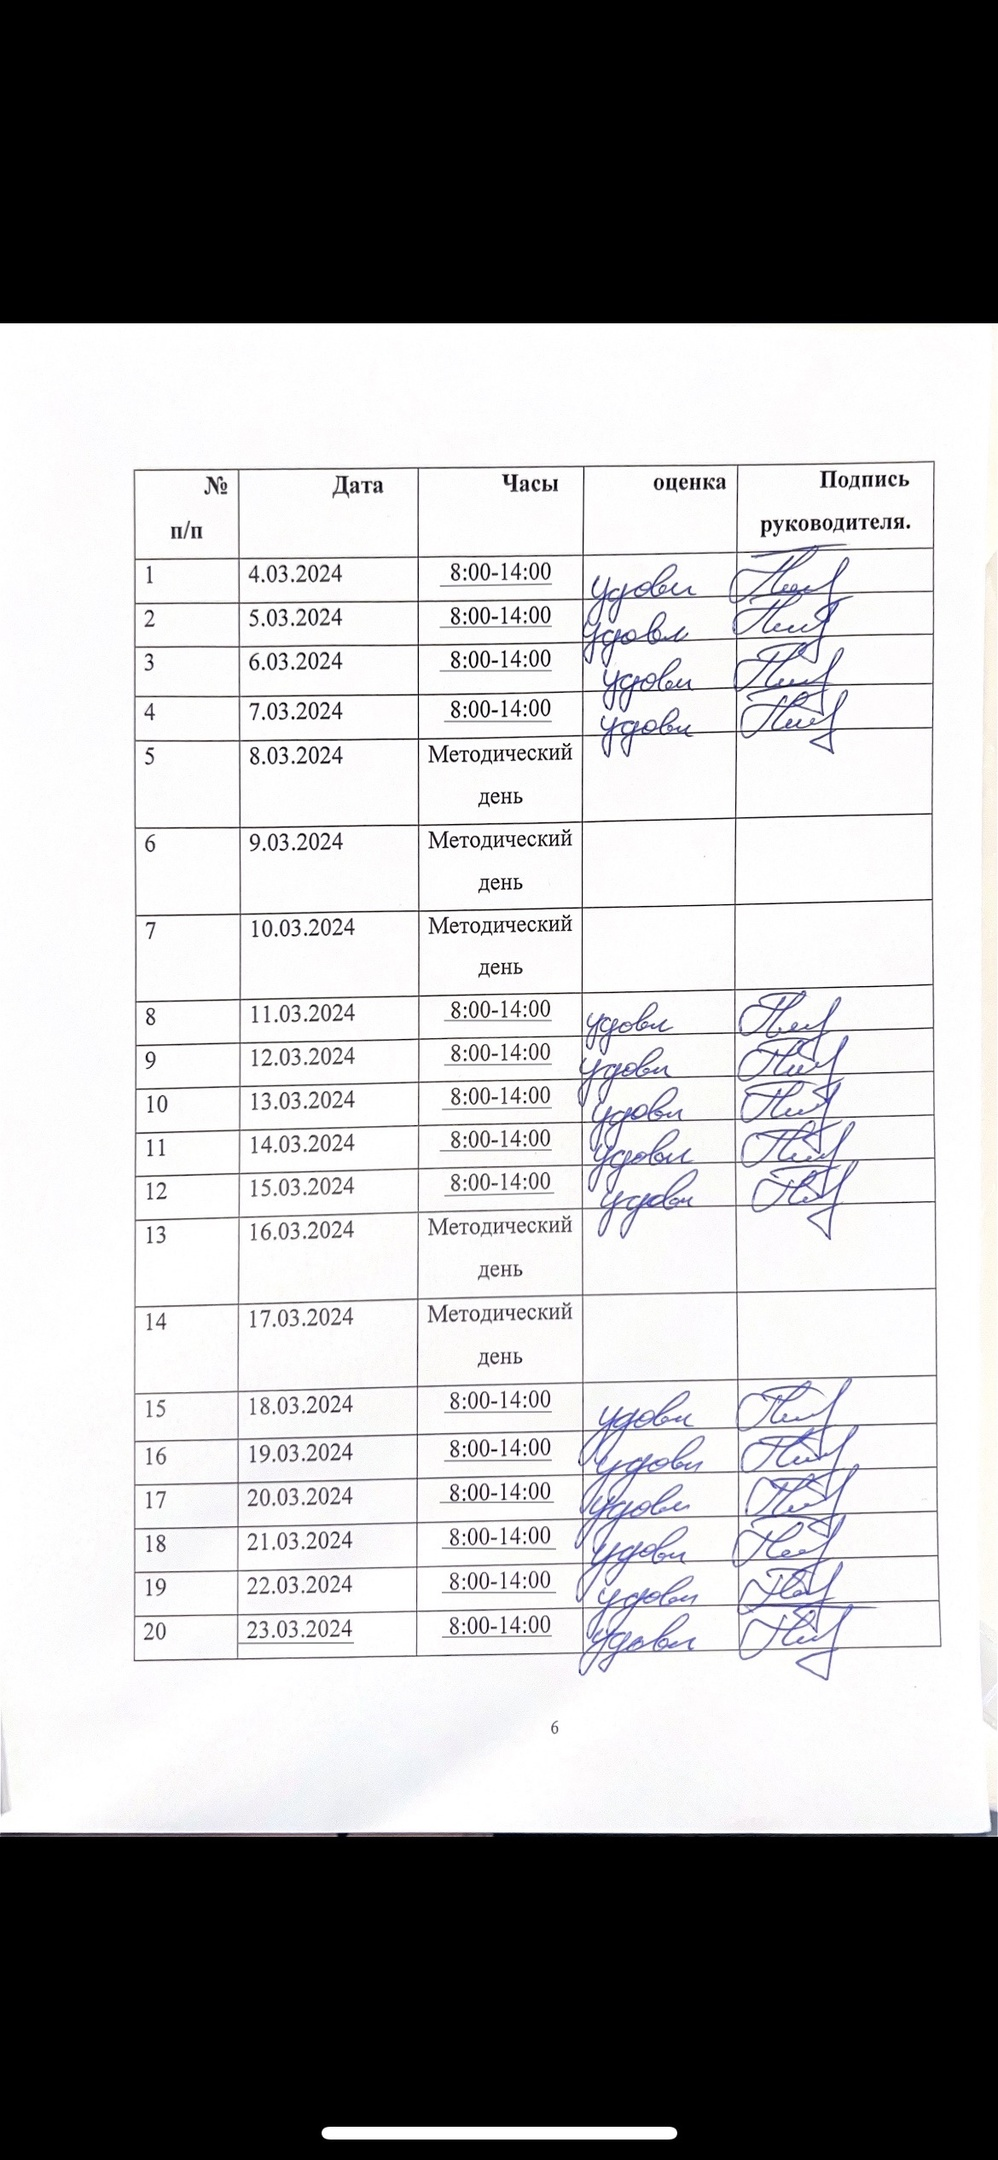 № п/п Дата Часы оценка Подпись руководителя.
1 4.03.2024 8:00-14:00 удовл
2 5.03.2024 8:00-14:00 удовл
3 6.03.2024 8:00-14:00 удовл
4 7.03.2024 8:00-14:00 удовл
5 8.03.2024 Методический день
6 9.03.2024 Методический день
7 10.03.2024 Методический день
8 11.03.2024 8:00-14:00 удовл
9 12.03.2024 8:00-14:00 удовл
10 13.03.2024 8:00-14:00 удовл
11 14.03.2024 8:00-14:00 удовл
12 15.03.2024 8:00-14:00 удовл
13 16.03.2024 Методический день
14 17.03.2024 Методический день
15 18.03.2024 8:00-14:00 удовл
16 19.03.2024 8:00-14:00 удовл
17 20.03.2024 8:00-14:00 удовл
18 21.03.2024 8:00-14:00 удовл
19 22.03.2024 8:00-14:00 удовл
20 23.03.2024 8:00-14:00 удовл
6